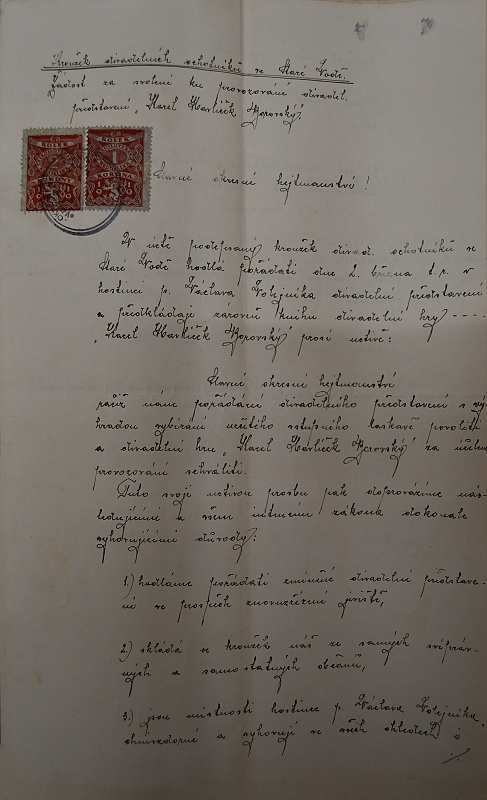 Kroužek divadelních ochotníků ve Staré Vodě.
Žádost za svolení ku provozování divadel.
představení „Karel Havlíček Borovský."
KOLEK KOLEK
1 1
KORUNA
Slavné okresní hejtmanství!
V úctě podepsaný kroužek divad. ochotníků ve
Staré Vodě hodlá pořádati dne 2. března t. r. v
hostinci p. Václava Volejníka divadelní představení
a předkládaje zároveň knihu divadelní hry ----
„Karel Havlíček Borovský" prosí uctivě:
Slavné okresní hejtmanství
račiž nám pořádání divadelního představení s vý
hradou vybírání určitého vstupného laskavě povoliti
a divadelní hru „Karel Havlíček Borovský" za účelem
provozování schváliti.
Tuto svoji uctivou prosbu pak doprovázíme nás-
ledujícími a všem ustanovením zákona dokonale
vyhovujícími důvody:
1.) hodláme pořádati zmíněné divadelní představe-
ní ve prospěch znovuzřízení jeviště,
2.) skládá se kroužek náš ze samých svépráv-
ných a samostatných občanů,
3.) jsou místnosti hostince p. Václava Volejníka
ohnivzdorné a vyhovují ve všech ohledech